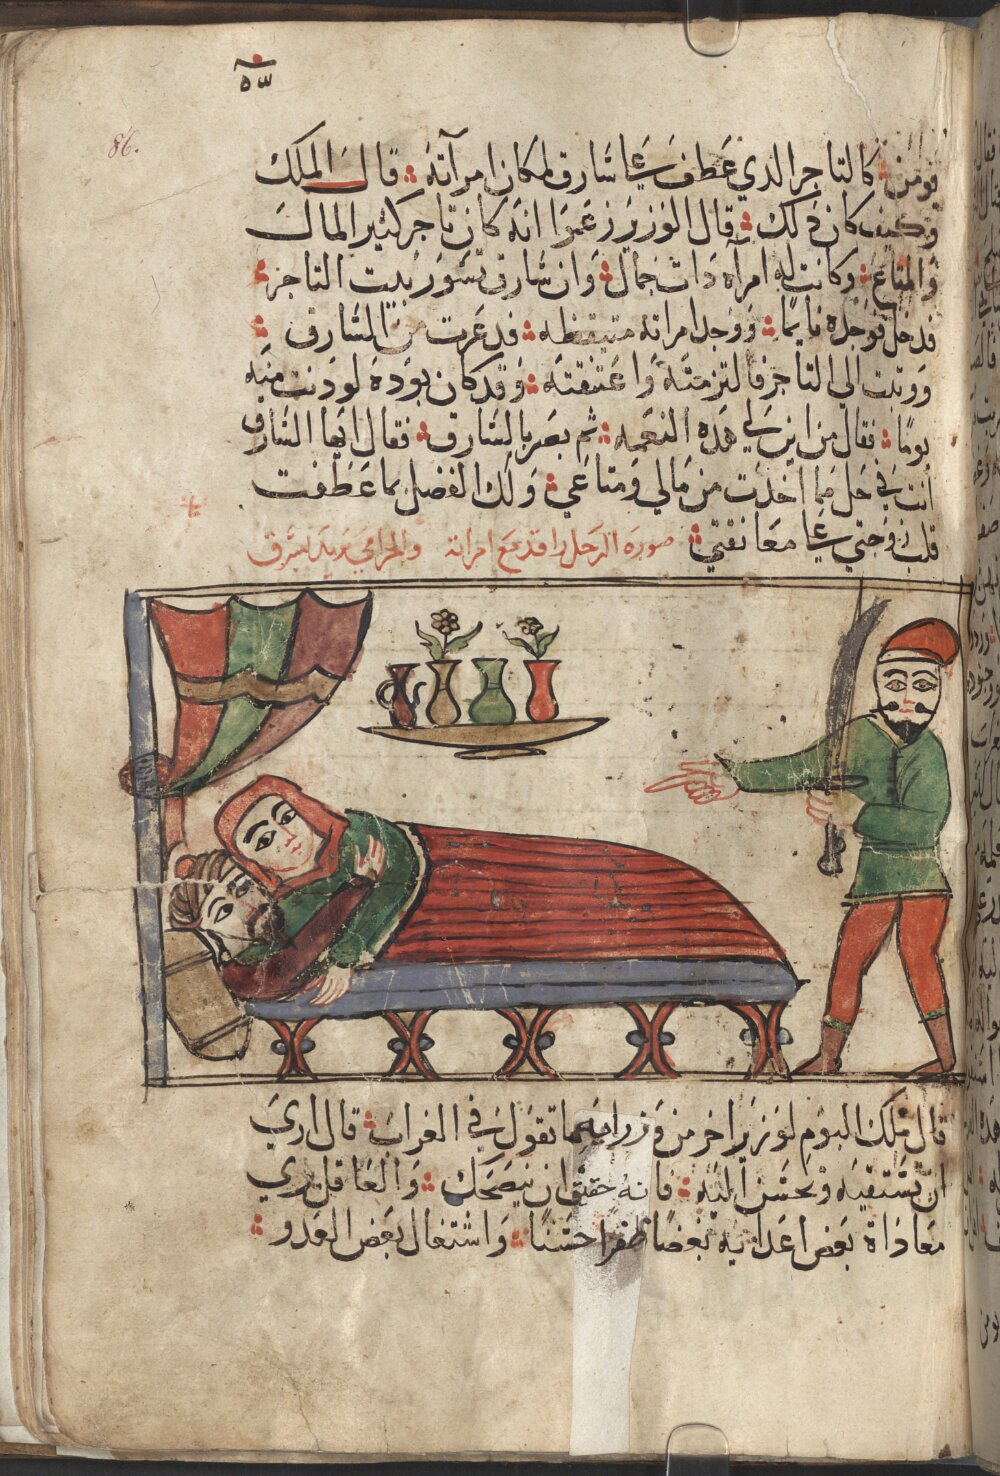 86.
يومن كالتاجر الدي عَطفَ عَلي سَارق لمكان امرآته قالَ المَلكَ
وكيف كان دَلك قال الوَزير زعَموا انه كان تاجر كثير المالَ
وَالمتاع وكانت له امرآه دَات جمال وَان سَارق تسَوَر بَيت التاجر
فدخل فوَجده نايمًا وَوَجد امراته متيقظه فدعَرت من السَّارق
وَوثبت الي التاجر فالتزمتَهَ وَاعتنقته وَقد كان بوَدهَ لو دَنت منهَ
يومًا فقال من اين لي هَده النعمه ثم بصَر بالسَّارق فقال ايها السَّارق
انت في حَل مما اخدَت من مَالي وَمتاعَي وَلَك الفضل بما عَطَفت
قلب زوَجتي عَلي معَانقتي
صورة الرجل راقد مع امراته والحرامي يريد يسرق
قال ملك البوَم لوَزير اخر من وَزرايه ما تقوَل في الغراب قال اري
ان تسَتبقيه وَتحسَن اليَه فانهُ حقيق ان ينصَحك وَالعَاقل يري
معَادَاة بعَض اعَدايه بعَضًا ظفرا حسَنًا وَاشتغال بعَض العَدو